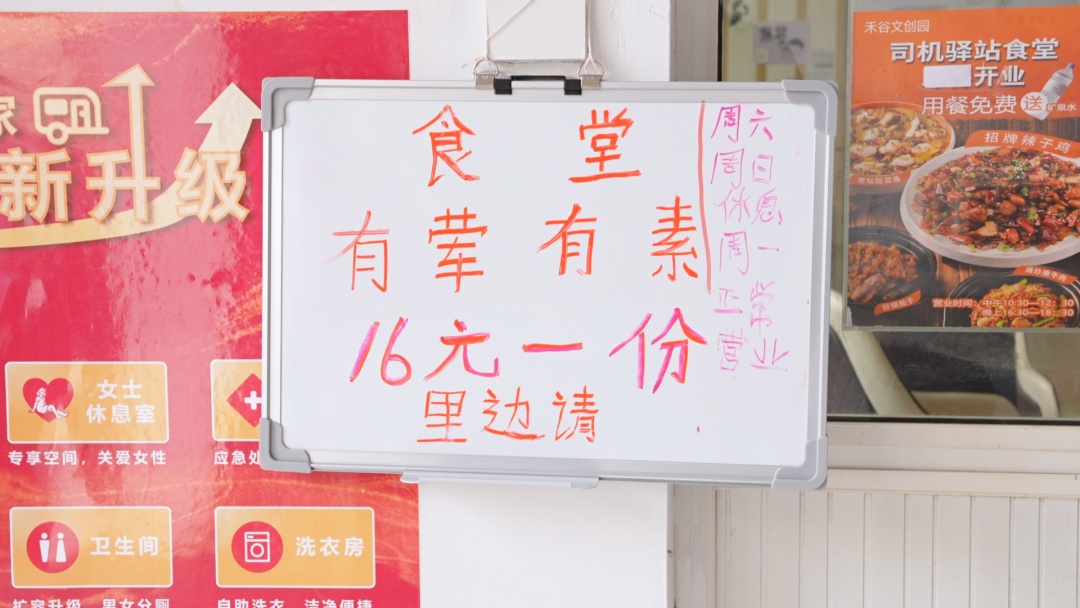 家
新升级
女士
休息室
专享空间，关爱女性
应急处
卫生间
扩容升级，男女分厕
洗衣房
自助洗衣，洁净便捷
食堂
有荤有素
16元一份
里边请
周六
周日
休息
周一
正常
营业
禾谷文创园
司机驿站食堂
开业
用餐免费送矿泉水
招牌辣子鸡
营业时间：中午10:30—12：30
晚上16:30—18：30